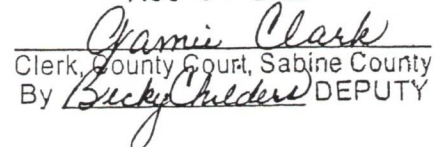 Jamie Clark
Clerk, County Court, Sabine County
By Becky Childers DEPUTY